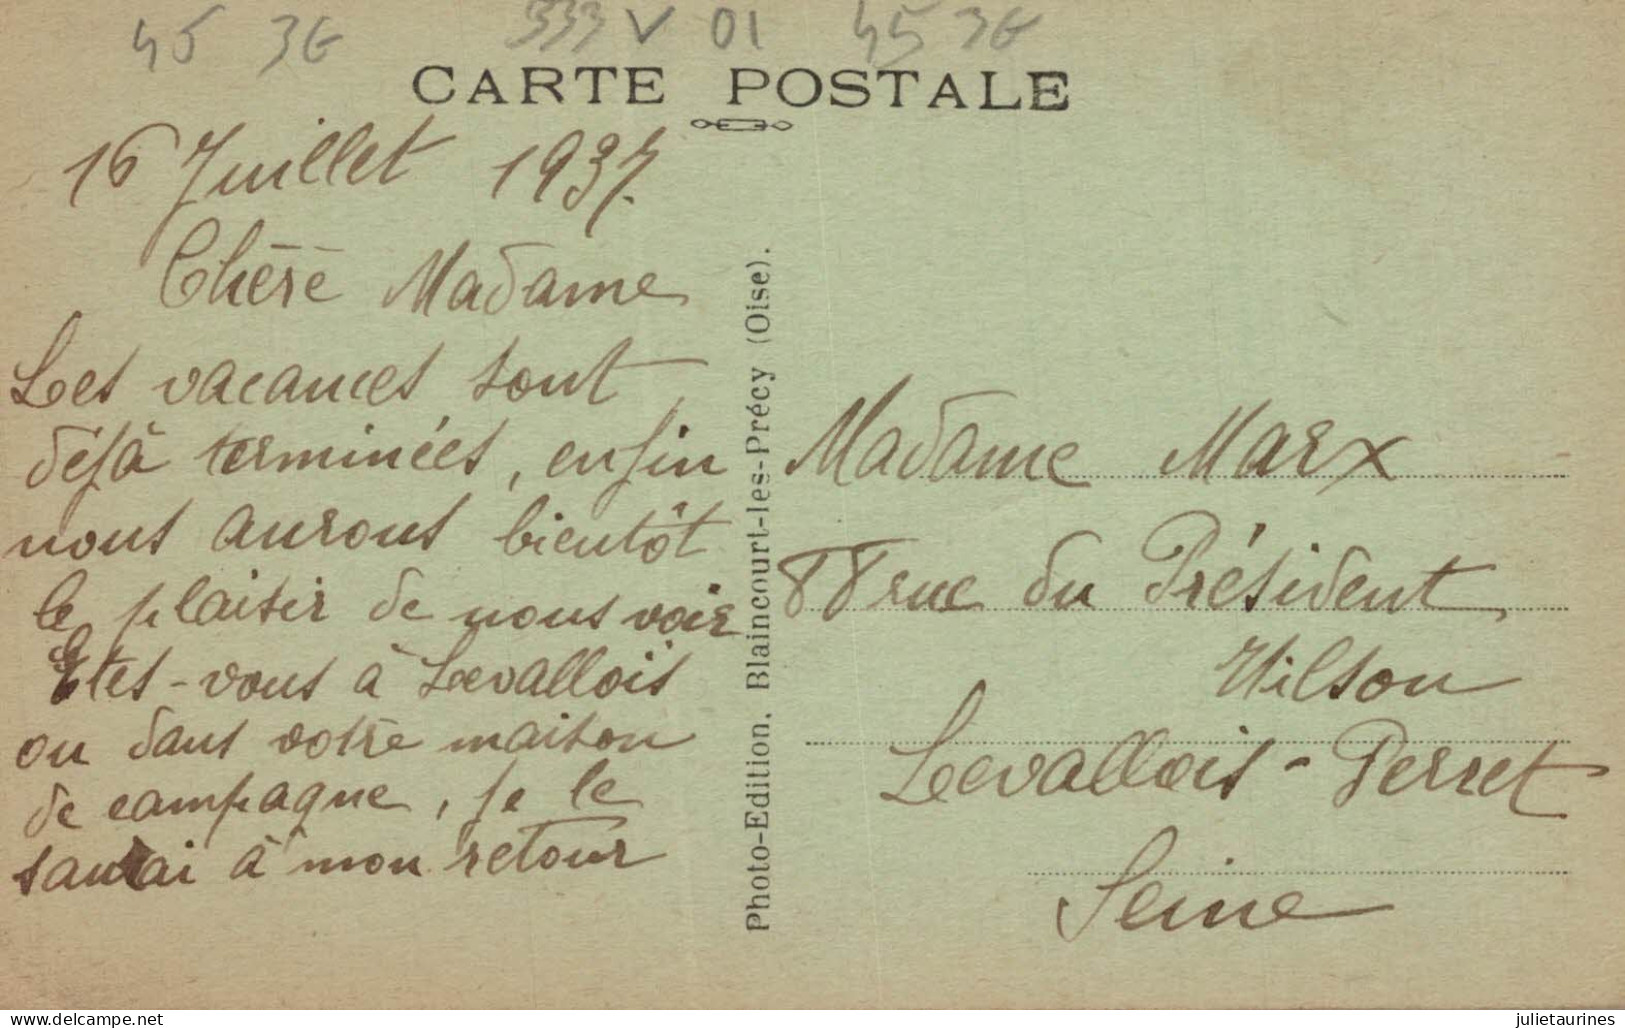 45 3G 333 V 01 45 3G
CARTE POSTALE
16 Juillet 1937.
Chère Madame
Les vacances sont
déjà terminées, enfin
nous aurons bientôt
le plaisir de nous voir
Etes-vous à Levallois
ou dans votre maison
de campagne, je le
saurai à mon retour
Photo-Edition. Blaincourt-les-Précy (Oise).
Madame Marx
88 rue du Président
Wilson
Levallois-Perret
Seine
www.delcampe.net
julietaurines